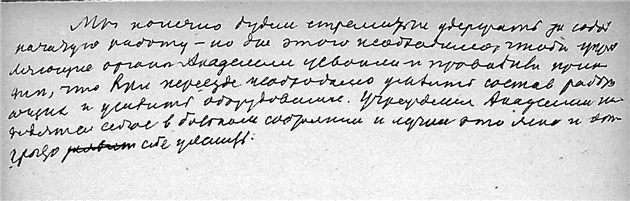 Мы конечно будем стремиться удержать за собой
научную работу — но для этого необходимо, чтобы управ
ляющие органы Академии усвоили и проводили прин
цип, что при переезде необходимо усилить состав работа
ющих и усилить оборудование. Учреждения Академии на
ходятся сейчас в бывшем состоянии и лучше это ясно и
себе уяснить.